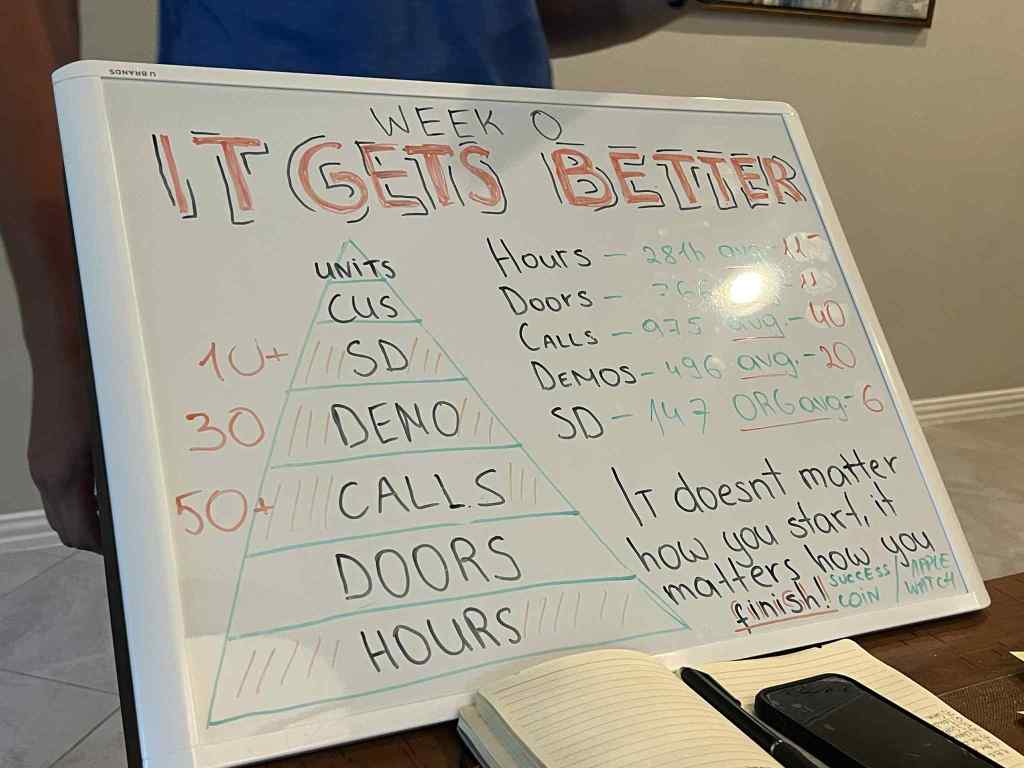 U BRANDS
WEEK 0
IT GETS BETTER
UNITS
CUS
10+ SD
30 DEMO
50+ CALLS
DOORS
HOURS
HOURS - 281h avg.- 11
DOORS -
CALLS - 975 avg.- 40
DEMOS - 496 avg.- 20
SD - 147 ORG avg- 6
IT doesnt matter
how you start, it
matters how you
finish! SUCCESS COIN / APPLE WATCH